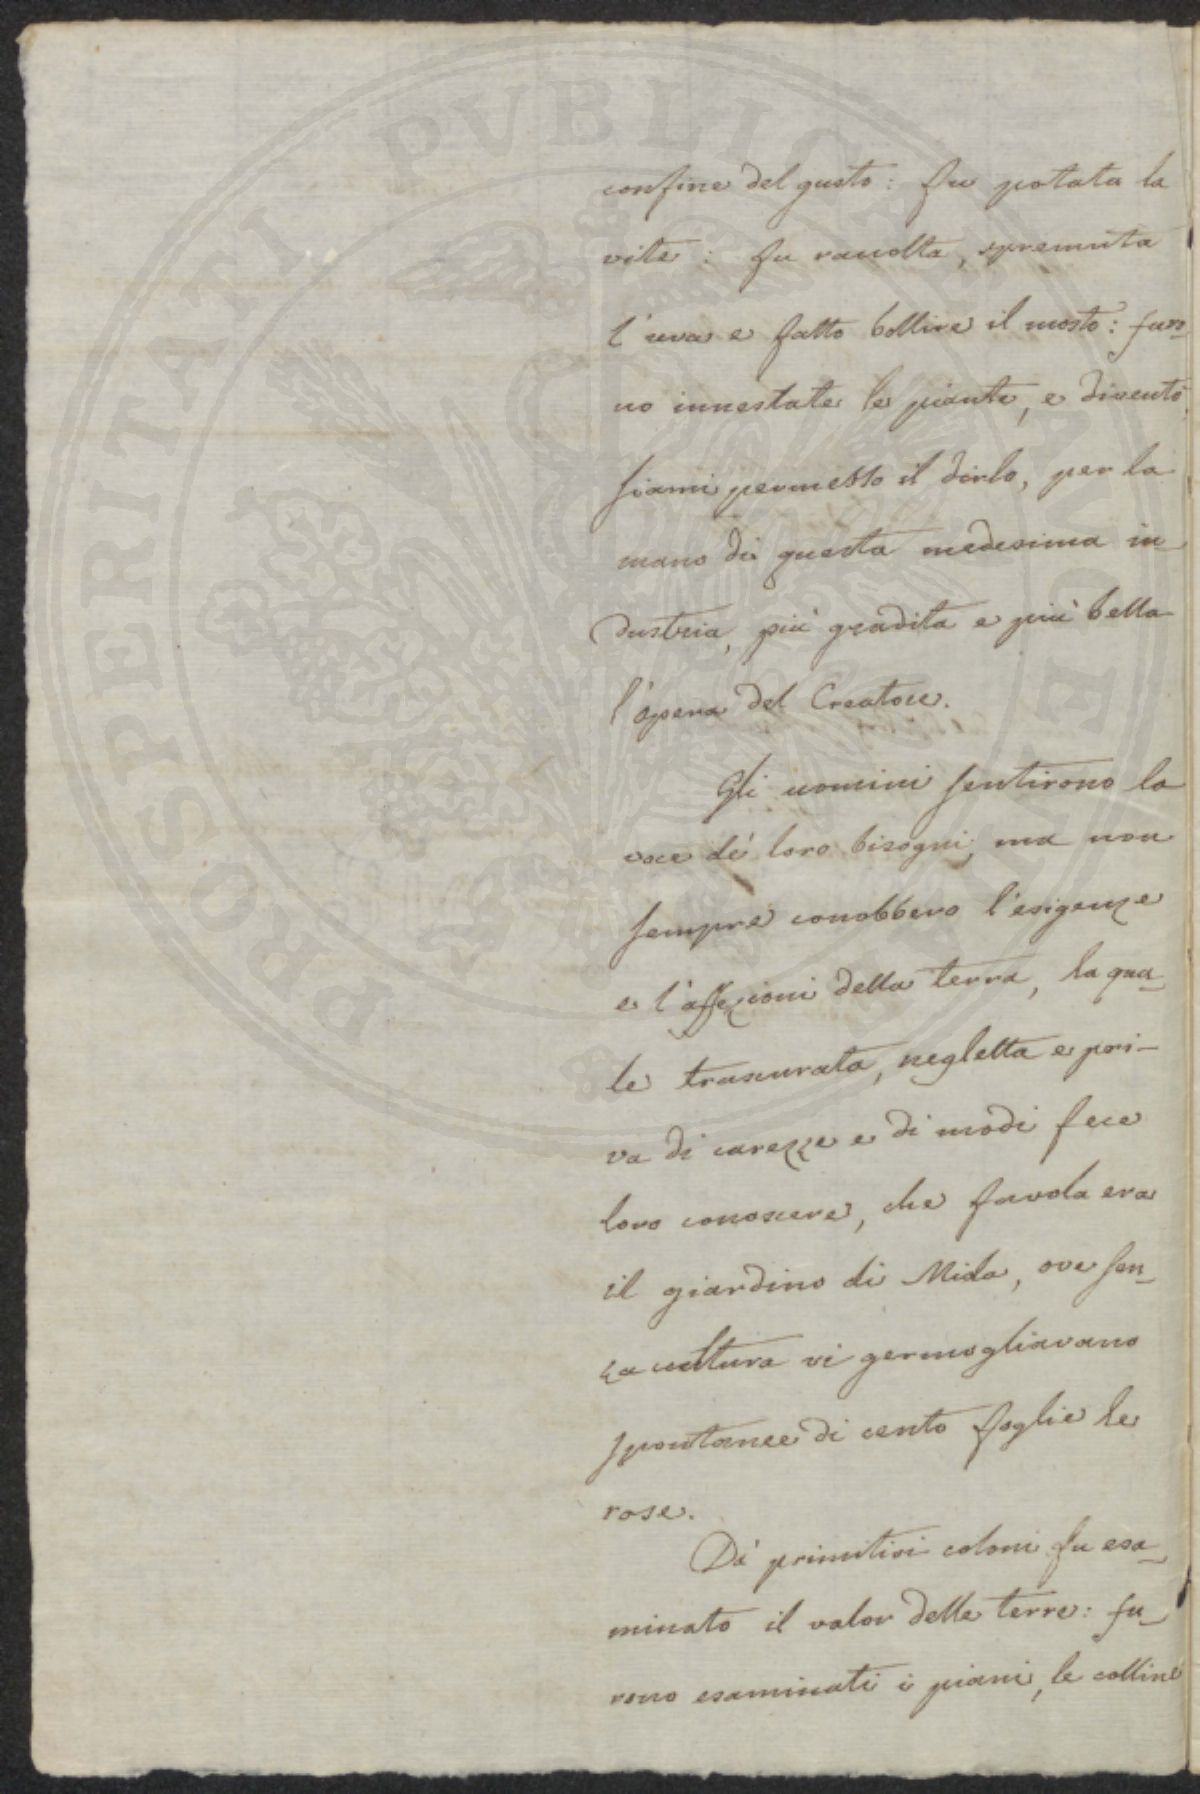 PROSPERITATI PVBLICAE AVGENDAE
confine del gusto: fu potata la
vite: fu racolta, spremuta
l'uva e fatto bollire il mosto: furo_
no innestate le piante, e diventò,
siami permesso il dirlo, per la
mano di questa medesima in_
dustria, più gradita e più bella
l'opera del Creatore.
Gli uomini sentirono la
voce de' loro bisogni, ma non
sempre conobbero l'esigenze
e l'affezioni della terra, la qua_
le trascurata, negletta e pri-
va di carezze e di modi fece
loro conoscere, che favola era
il giardino di Mida, ove sen_
za cultura vi germogliavano
spontanee di cento foglie le
rose.
Da' primitivi coloni fu esa_
minato il valor delle terre: fu_
rono esaminati i piani, le colline